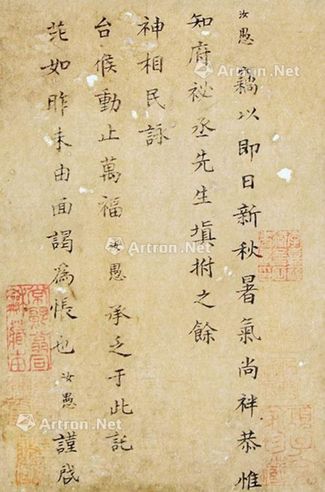 汝愚竊以即日新秋暑氣尚袢恭惟
知府祕丞先生填拊之餘
神相民詠
台候動止萬福汝愚承乏于此託
芘如昨未由面謁為悵也汝愚謹啟
Artron.Net
Artron.Net
Artron.Net
Artron.Net
Artron.Net